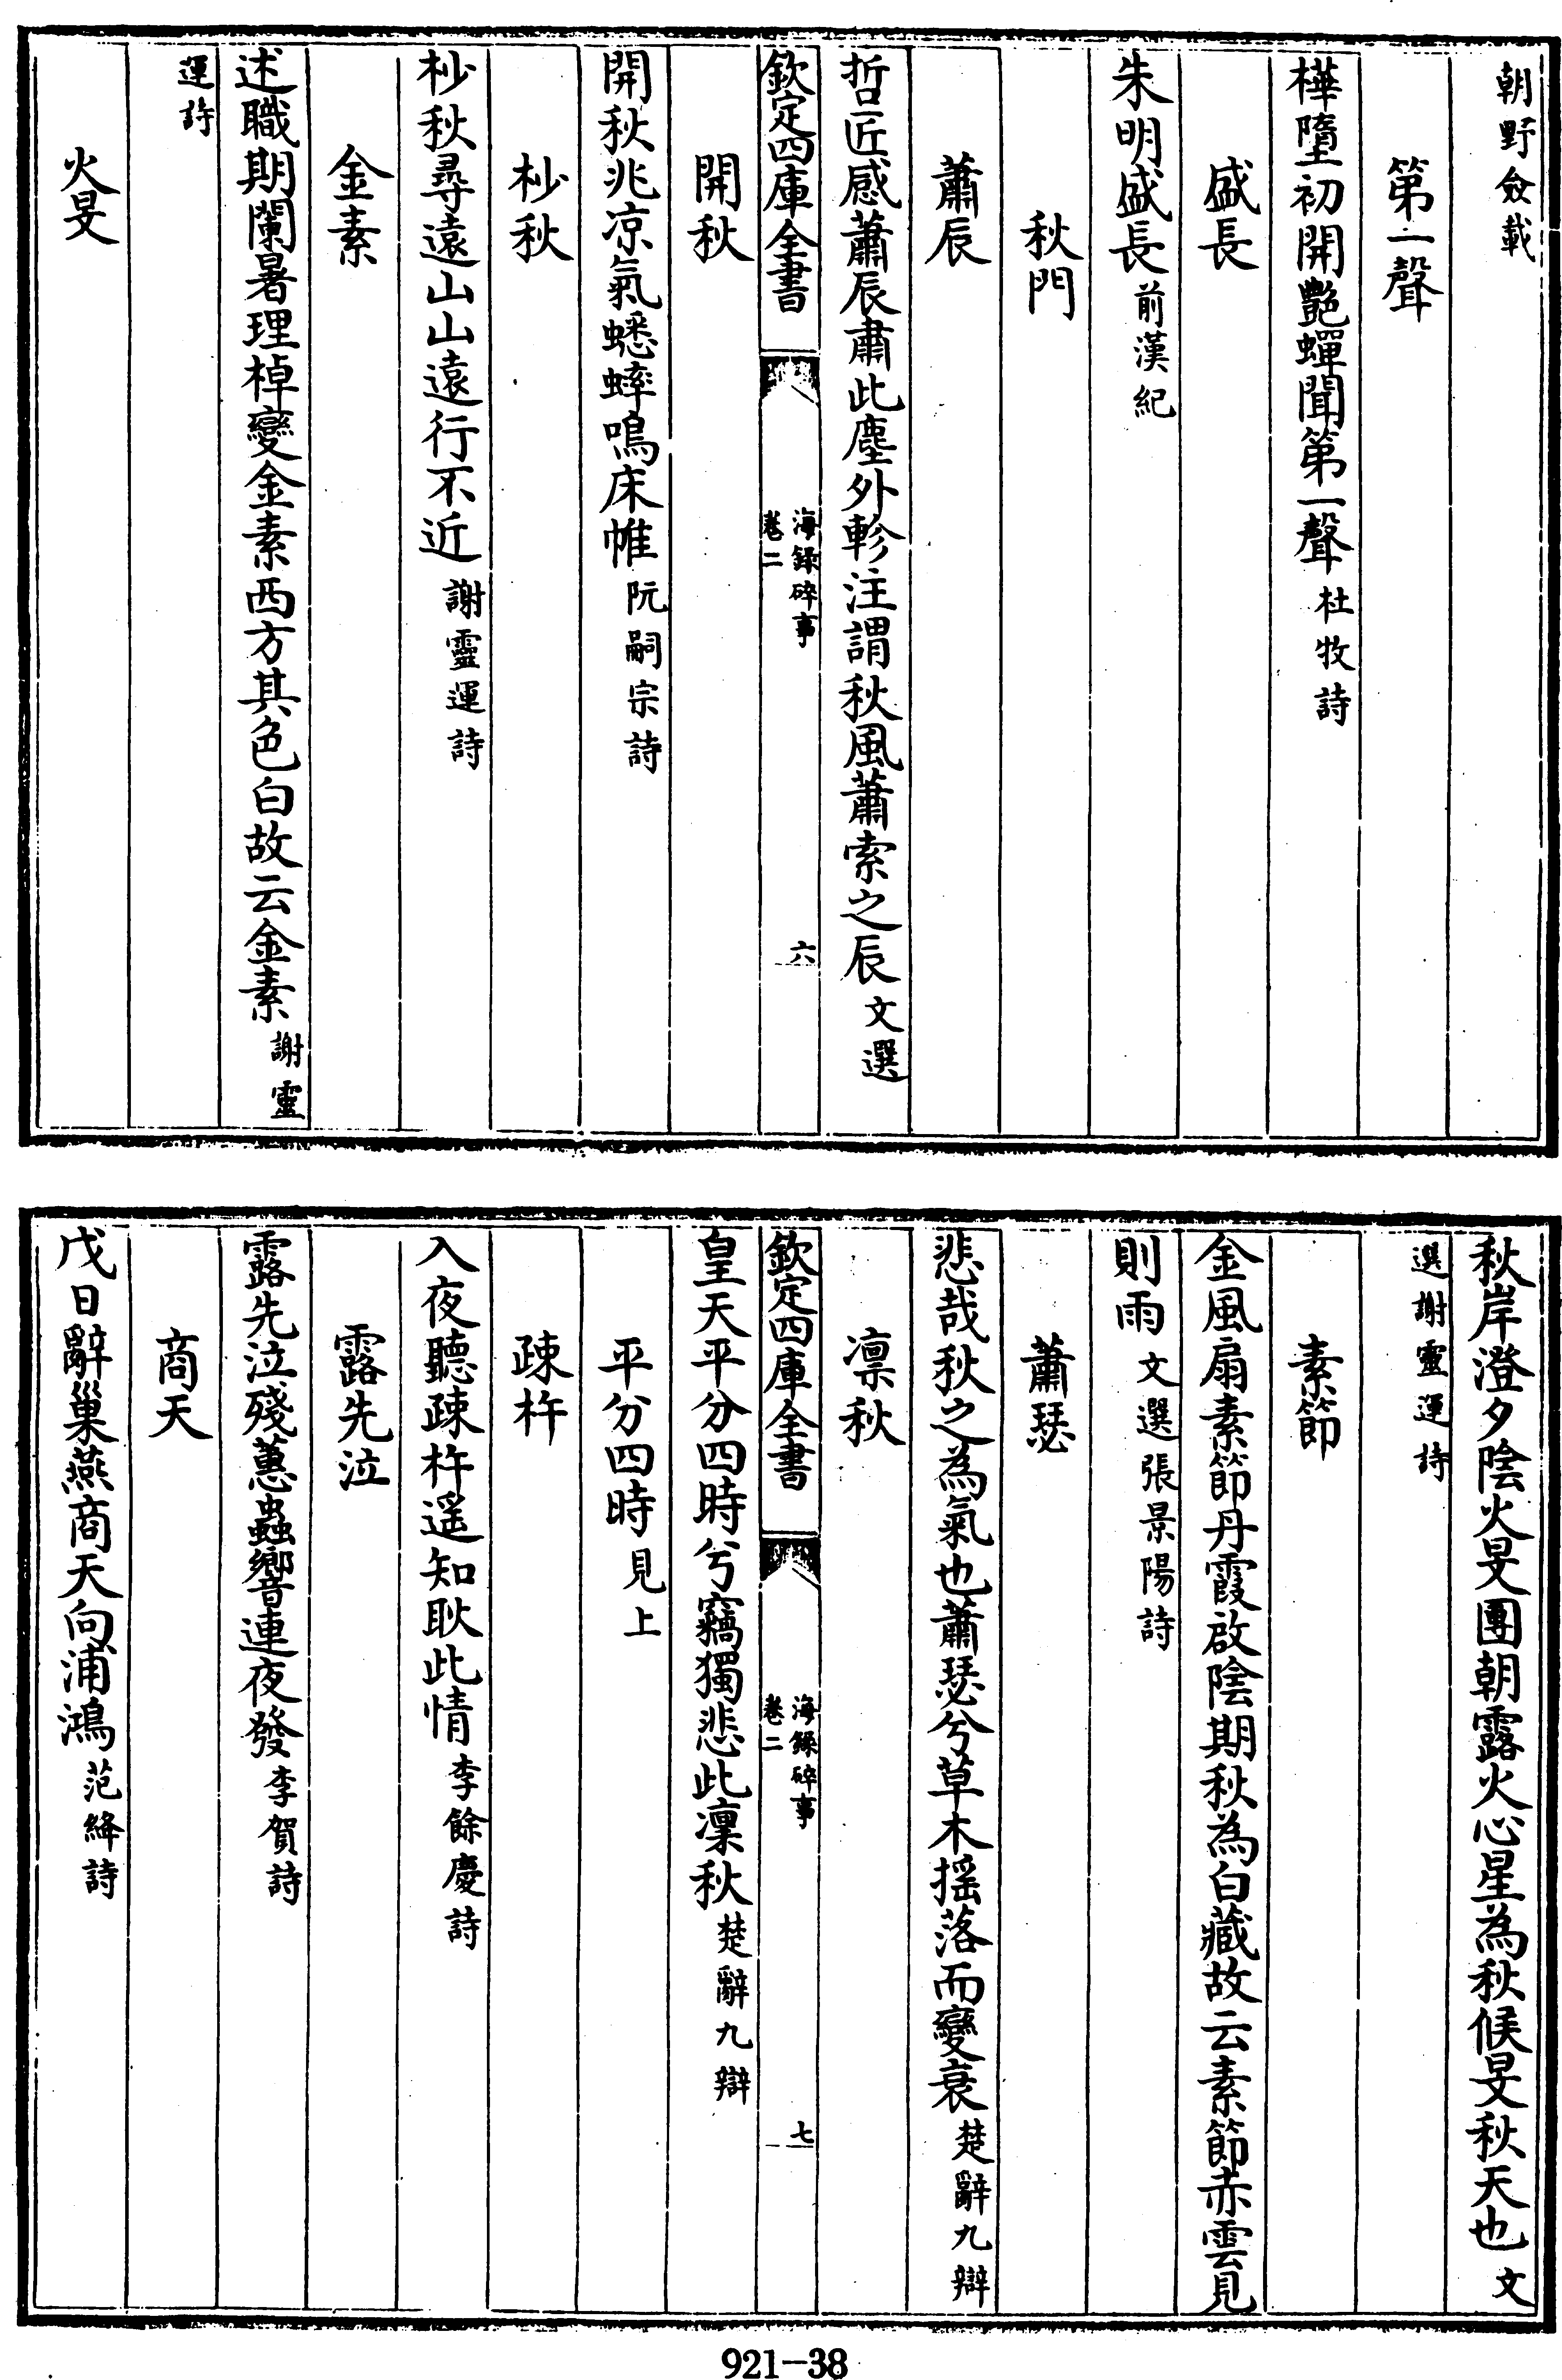 朝野僉載
第一聲
樺墮初開艷蟬聞第一聲杜牧詩
盛長
朱明盛長前漢紀
秋門
蕭辰
哲匠感蕭辰肅此塵外軫注謂秋風蕭索之辰文選
欽定四庫全書
海錄碎事
卷二
六
開秋
開秋兆凉氣蟋蟀鳴床帷阮嗣宗詩
杪秋
杪秋尋遠山山遠行不近謝靈運詩
金素
述職期闌暑理棹變金素西方其色白故云金素謝靈
運詩
火旻
秋岸澄夕陰火旻團朝露火心星為秋候旻秋天也文
選謝靈運詩
素節
金風扇素節丹霞啟陰期秋為白藏故云素節赤雲見
則雨文選張景陽詩
蕭瑟
悲哉秋之為氣也蕭瑟兮草木揺落而變衰楚辭九辯
凛秋
欽定四庫全書
海錄碎事
卷二
七
皇天平分四時兮竊獨悲此凛秋楚辭九辯
平分四時見上
疎杵
入夜聽疎杵遥知耿此情李餘慶詩
露先泣
露先泣殘蕙蟲響連夜發李賀詩
商天
戊日辭巢燕商天向浦鴻范絳詩
921-38